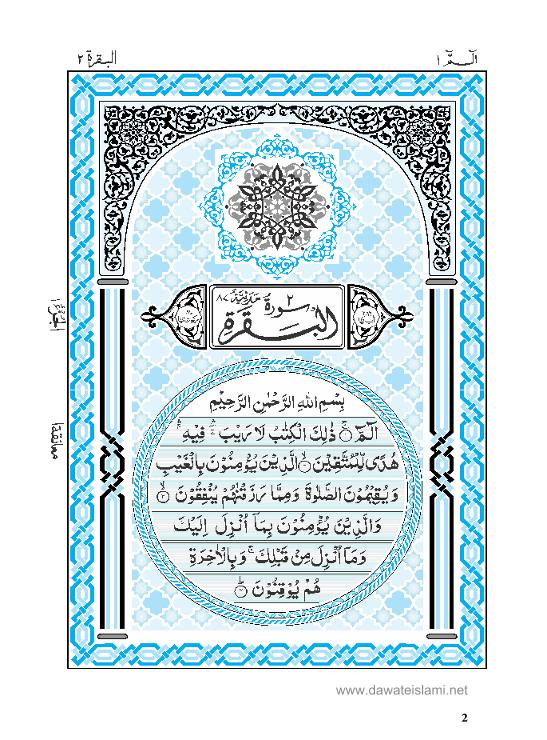 الٓـمّٓ ١
البقرة ٢
٢
سورة مدنية ٨٧
البقرة
الجزء ١
معانقة ١
بِسْمِ اللّٰهِ الرَّحْمٰنِ الرَّحِيْمِ
الٓمّٓ ۚ ذٰلِكَ الْكِتٰبُ لَا رَيْبَ ۛ فِيْهِ ۛ
هُدًى لِّلْمُتَّقِيْنَ ۙ الَّذِيْنَ يُؤْمِنُوْنَ بِالْغَيْبِ
وَيُقِيْمُوْنَ الصَّلٰوةَ وَمِمَّا رَزَقْنٰهُمْ يُنْفِقُوْنَ ۙ
وَالَّذِيْنَ يُؤْمِنُوْنَ بِمَآ اُنْزِلَ اِلَيْكَ
وَمَآ اُنْزِلَ مِنْ قَبْلِكَ ۚ وَبِالْاٰخِرَةِ
هُمْ يُوْقِنُوْنَ ؕ
www.dawateislami.net
2